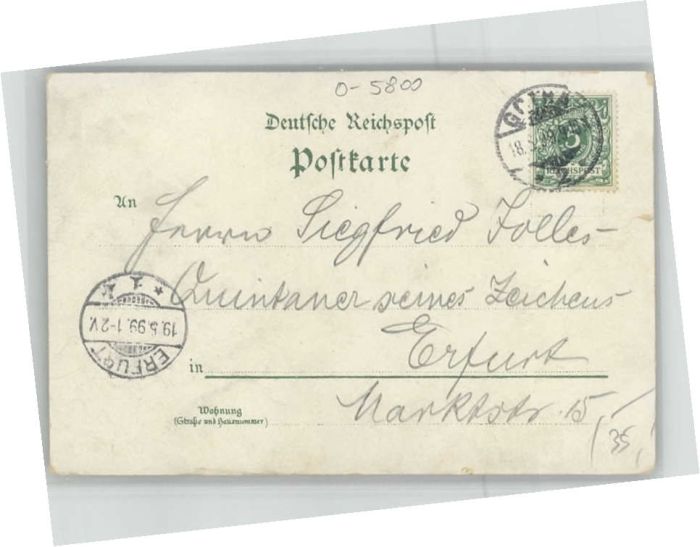 0-5800
Deutsche Reichspost
Postkarte
GOTHA
18.5.99.
5
REICHSPOST
An
Herrn Siegfried Jolles-
Quintaner seines Zeichens
Erfurt
in
Marktstr. 15,
Wohnung
(Straße und Hausnummer)
ERFURT
19.5.99.1-2V.
* 1 *
(35,-